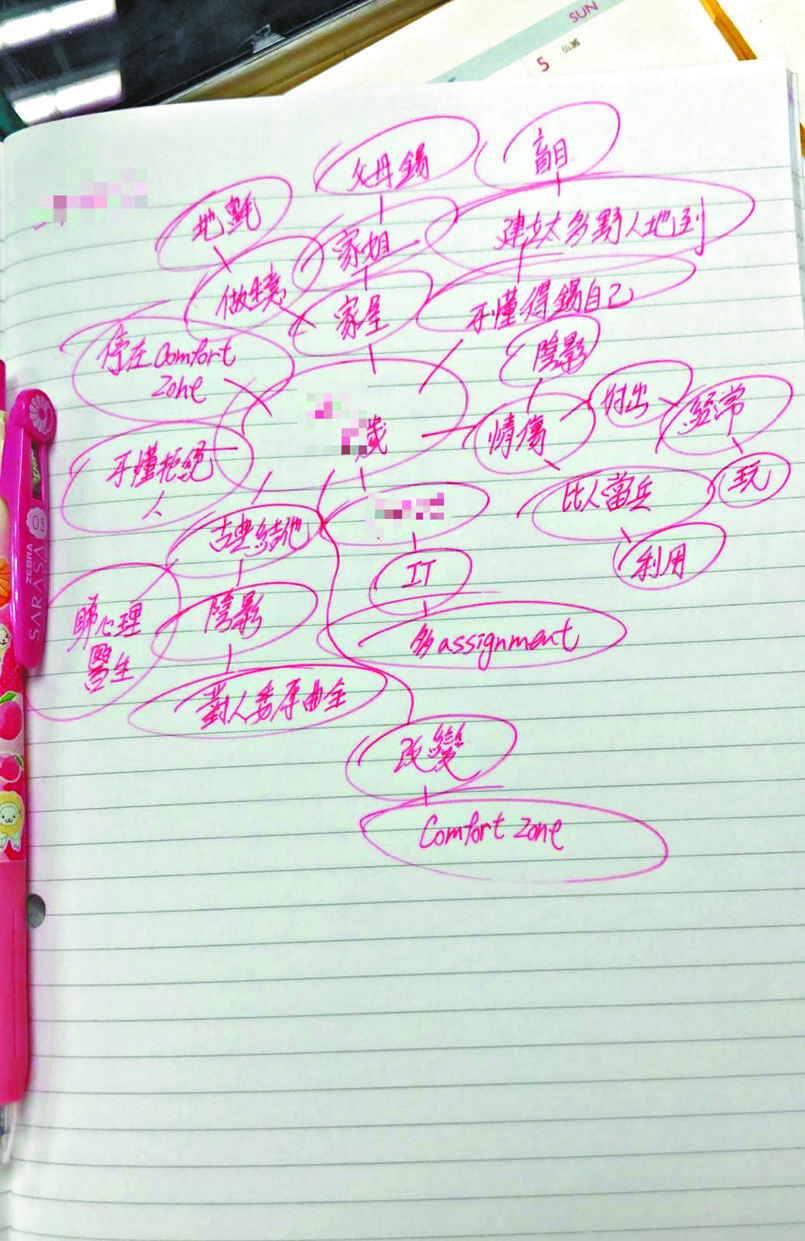 SUN
5 仏滅
父母錫
盲目
地氈
家姐
建立太多野人地到
做生意
家星
不懂得錫自己
停在 Comfort
Zone
陰影
歲
情傷
付出
經常
不懂拒絕
人
比人當兵
玩
古典結他
利用
IT
睇心理
醫生
陰影
多assignment
對人委屈曲全
改變
Comfort Zone
ZEBRA
SARASA
0.5